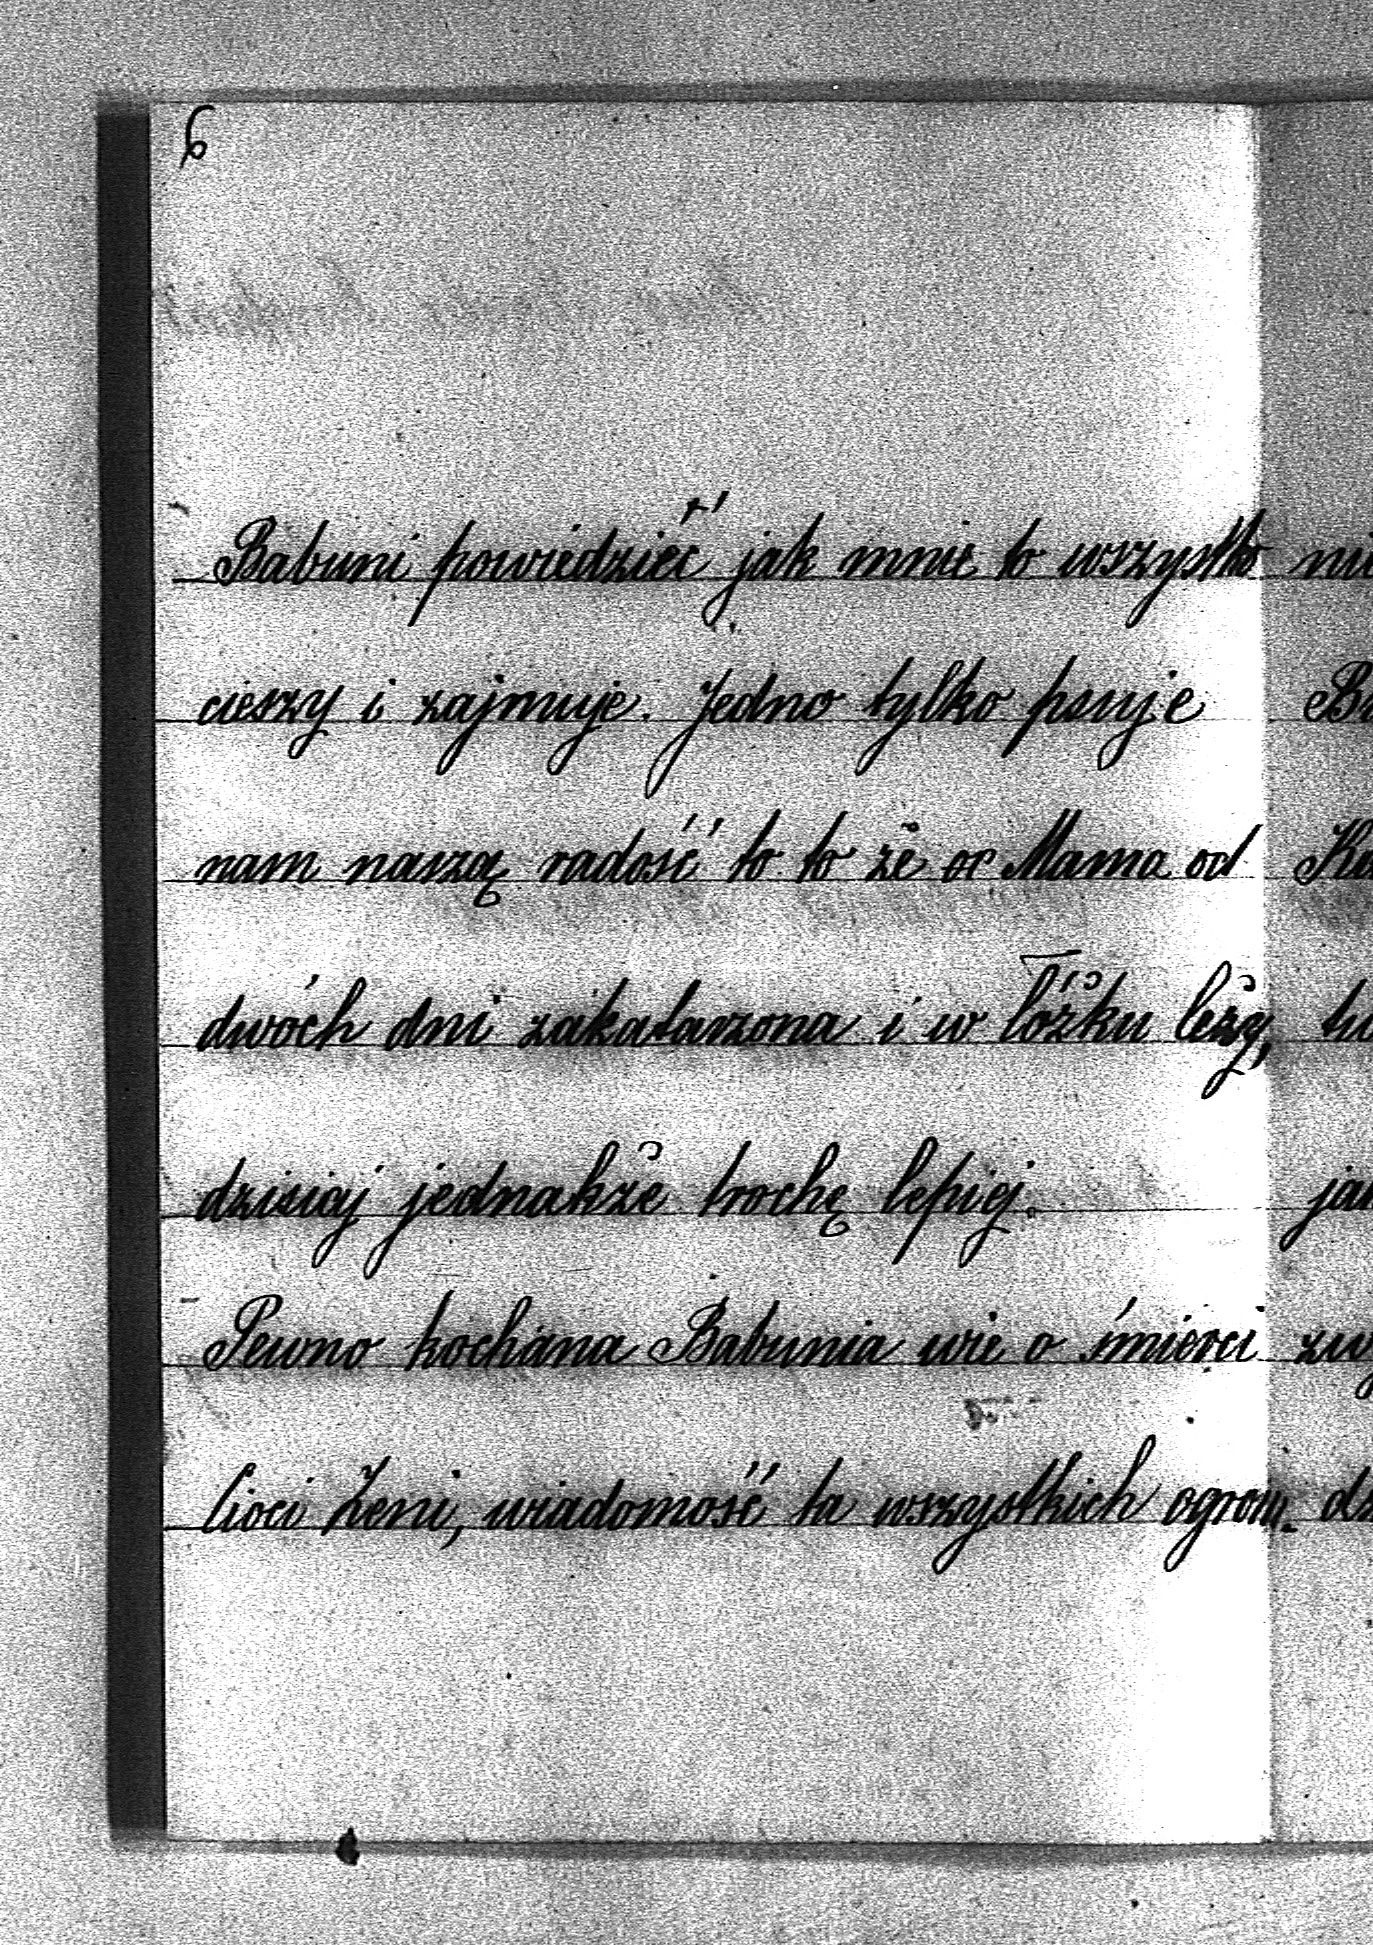 6
Babuni powiedzieć jak mnie to wszystko
cieszy i zajmuje. Jedno tylko psuje
nam naszą radość to to że Mama od
dwóch dni zakatarzona i w łóżku leży,
dzisiaj jednakże trochę lepiej.
Pewno kochana Babunia wie o śmierci
Cioci Żeni, wiadomość ta wszystkich ogrom-